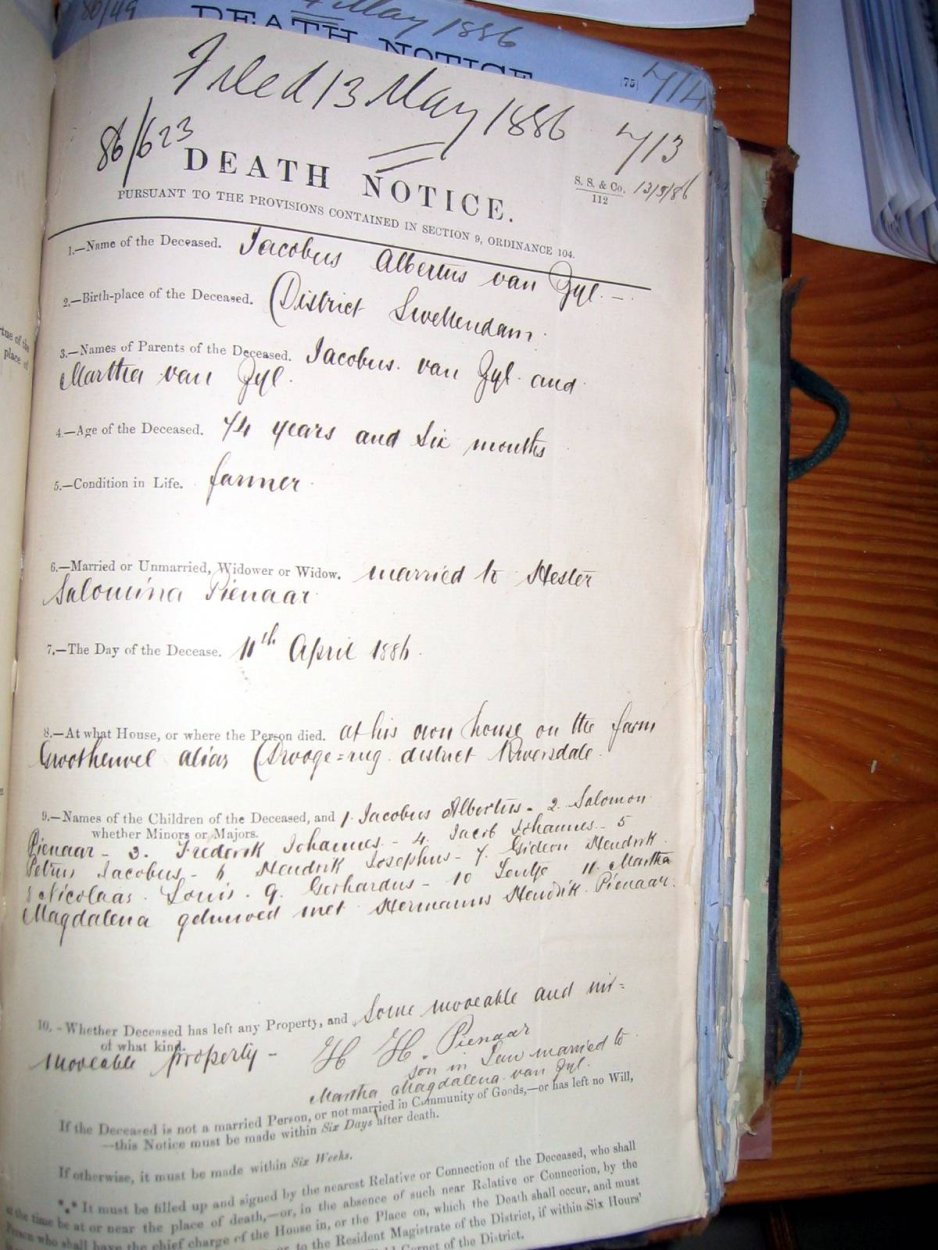 4 May 1886
DEATH NOTICE
[75] 714
Filed 13 May 1886
86/623
713
DEATH NOTICE.
S. S. & Co. 13/5/86
112
PURSUANT TO THE PROVISIONS CONTAINED IN SECTION 9, ORDINANCE 104.
1.—Name of the Deceased. Jacobus Albertus van Zyl —.
2.—Birth-place of the Deceased. District Swellendam.
3.—Names of Parents of the Deceased. Jacobus van Zyl and
Martha van Zyl.
4.—Age of the Deceased. 74 years and six months
5.—Condition in Life. farmer.
6.—Married or Unmarried, Widower or Widow. married to Hester
Salomina Pienaar.
7.—The Day of the Decease. 11th April 1886.
8.—At what House, or where the Person died. at his own house on the farm
alias Drooge=rug district Riversdale.
9.—Names of the Children of the Deceased, and 1. Jacobus Albertus – 2. Salomon
whether Minors or Majors.
Pienaar – 3. Frederik Johannes – 4. Jacob Johannes – 5
Petrus Jacobus – 6 Hendrik Josephus – 7. Gideon Hendrik
8 Nicolaas Louis. 9. Gerhardus – 10 11. Martha
Magdalena gehuwed met Hermanus Hendrik Pienaar.
10.—Whether Deceased has left any Property, and Some moveable and im=
of what kind.
moveable property –
H H. Pienaar
son in Law married to
Martha Magdalena van Zyl.
If the Deceased is not a married Person, or not married in Community of Goods,—or has left no Will,
—this Notice must be made within Six Days after death.
If otherwise, it must be made within Six Weeks.
*.* It must be filled up and signed by the nearest Relative or Connection of the Deceased, who shall
at the time be at or near the place of death,—or, in the absence of such near Relative or Connection, by the
Person who shall have the chief charge of the House in, or the Place on, which the Death shall occur, and must
to the Resident Magistrate of the District, if within Six Hours'
Cornet of the District.